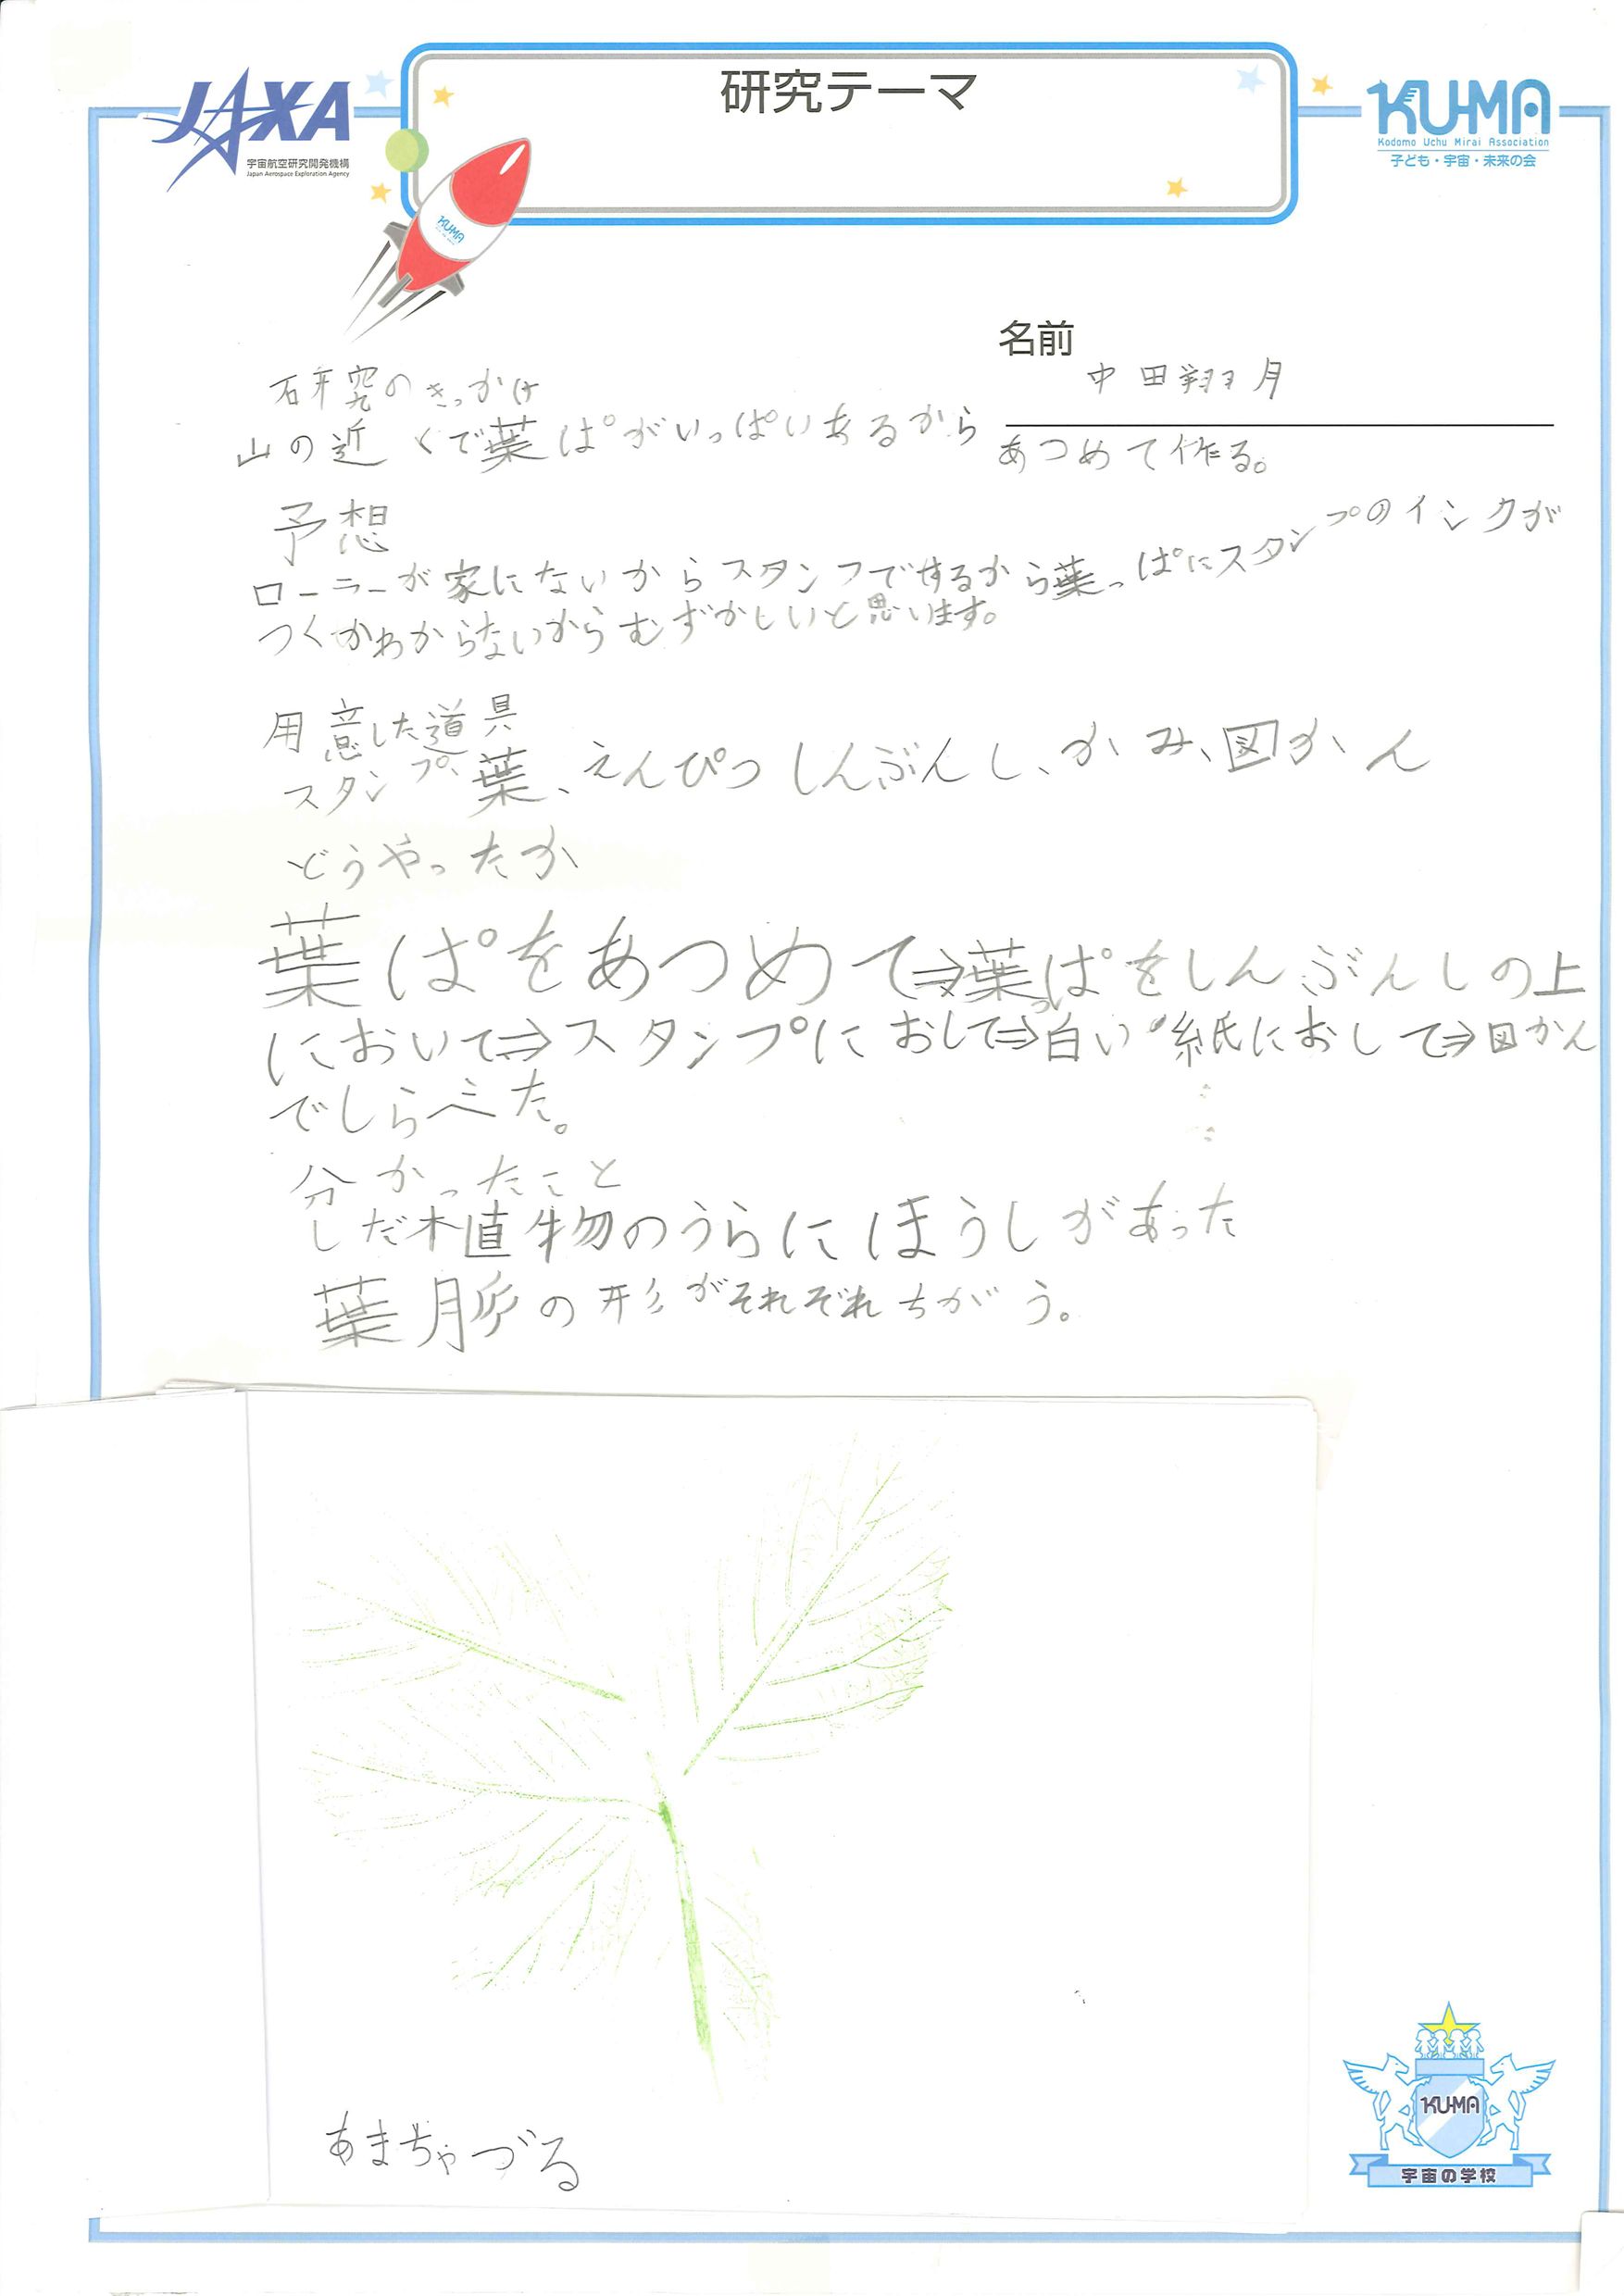 JAXA
宇宙航空研究開発機構
Japan Aerospace Exploration Agency
研究テーマ
KU-MA
Kodomo Uchu Mirai Association
子ども・宇宙・未来の会
KU-MA
名前
中田翔月
研究のきっかけ
山の近くで葉ぱがいっぱいあるから
あつめて作る。
予想
ローラーが家にないからスタンフでするから葉っぱにスタンプのインクが
つくかわからないからむずかしいと思います。
用意した道具
スタンプ、葉、えんぴつ しんぶんし、かみ、図かん
どうやったか
葉ぱをあつめて⇒葉っぱをしんぶんしの上
において⇒スタンプにおして⇒白い紙におして⇒図かん
でしらべた。
分かったこと
しだ植物のうらにほうしがあった
葉脈の形がそれぞれちがう。
あまちゃづる
KU-MA
宇宙の学校